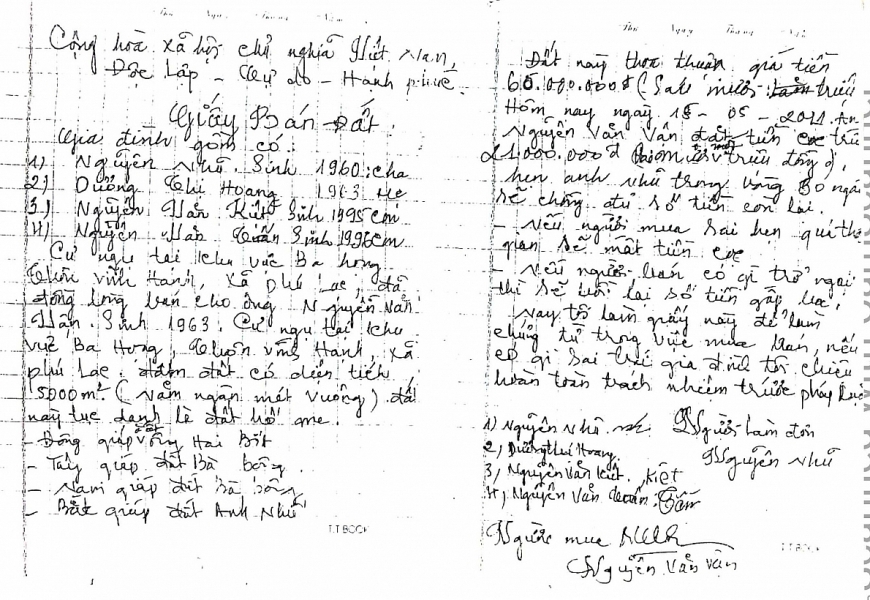 Thứ Ngày Tháng Năm
Cộng hoà xã hội chủ nghĩa Việt Nam,
Độc Lập - Tự do - Hạnh phúc.
Giấy Bán Đất.
Gia đình gồm có:
1) Nguyễn Nhữ. Sinh 1960: cha
2) Dường Thị Hoang 1963 Mẹ
3) Nguyễn Văn Kiệt Sinh 1995 con
4) Nguyễn Văn Tuấn Sinh 1996 con
Cư ngụ tại khu vực Ba hong
thôn vĩnh Hanh, xã phú Lạc, đã
đồng lòng bán cho ông Nguyễn Văn
Vân. Sinh 1963. Cư ngụ tại khu
vực Ba Hong, thuôn vĩnh Hanh, xã
phú Lạc. đám đất có diện tích
5000m². (năm ngàn mét vuông) đất
này tục danh là đất hố me.
- Đông giáp đất Hai Bốt
- Tây giáp đất Bà bông.
- Nam giáp đất Bà bông
- Bắc giáp đất Anh Nhữ
T.T BOOK
Thứ Ngày Tháng Năm
Đất này thoả thuận giá tiền
60.000.000đ (Sáu mươi triệu
Hôm nay ngày 18 - 05 - 2011.
Nguyễn Văn Vân đặt tiền cọc
21.000.000đ (hai mươi mốt triệu đồng),
hẹn anh nhữ trong vòng 30 ngày
sẽ chồng đủ số tiền còn lại.
- nếu người mua sai hẹn quá thờ
gian sẽ mất tiền cọc
- nếu người bán có gì trở ngại
thì sẽ bồi lại số tiền gấp hai.
Nay tôi làm giấy này để làm
chứng từ trong việc mua bán, nếu
có gì sai trái gia đình tôi chiệu
hoàn toàn trách nhiệm trước pháp luật
1) Nguyễn Nhữ. Người làm đơn
2, Dường thị Hoang. Nguyễn Nhữ
3, Nguyễn Văn Kiệt. Kiệt
4, Nguyễn Văn tuấn.
Người mua
Nguyễn Văn Vân
T.T BOOK